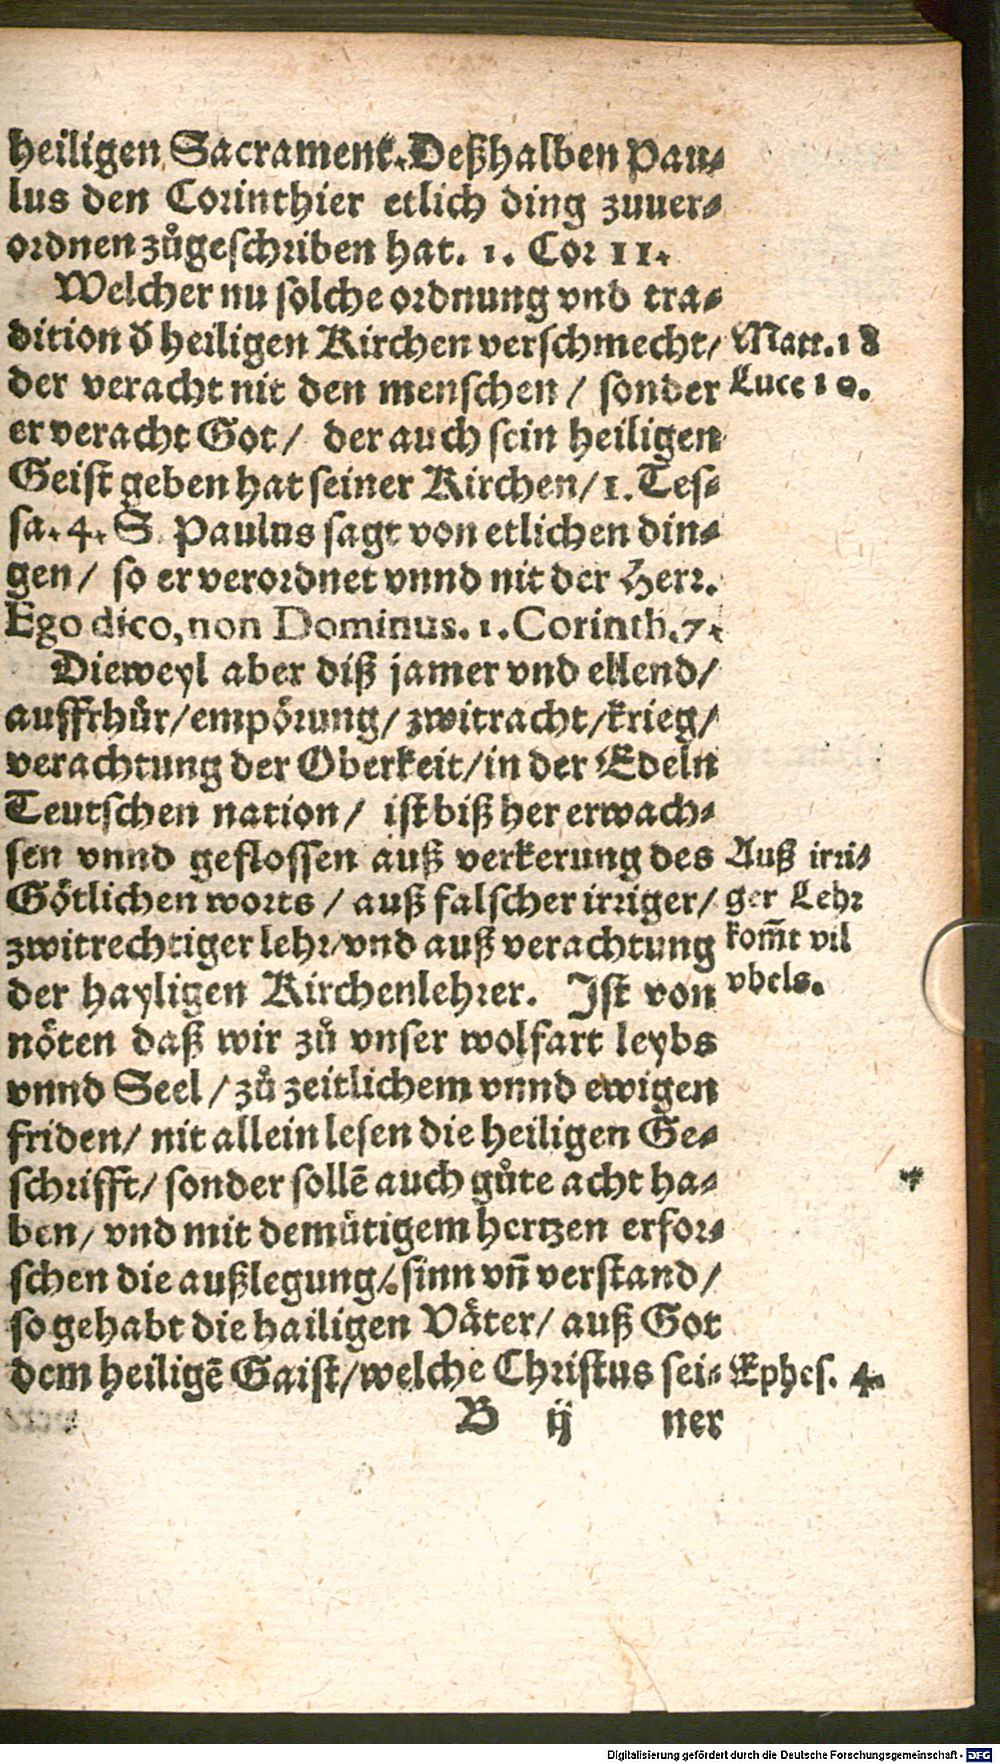 heiligen Sacrament. Deßhalben Pau-
lus den Corinthier etlich ding zuuer-
ordnen zůgeschriben hat. 1. Cor 11.
Welcher nu solche ordnung vnd tra-
dition d̕ heiligen Kirchen verschmecht/
Matt. 18
der veracht nit den menschen / sonder
Luce 10.
er veracht Got / der auch sein heiligen
Geist geben hat seiner Kirchen / 1. Tes-
sa. 4. S. Paulus sagt von etlichen din-
gen / so er verordnet vnnd nit der Herr.
Ego dico, non Dominus. 1. Corinth. 7.
Dieweyl aber diß jamer vnd ellend /
auffrhůr / empörung / zwitracht / krieg /
verachtung der Oberkeit / in der Edeln
Teutschen nation / ist biß her erwach-
sen vnnd geflossen auß verkerung des
Götlichen worts / auß falscher irriger /
zwitrechtiger lehr / vnd auß verachtung
der hayligen Kirchenlehrer. Ist von
Auß irri-
ger Lehr
kom̄t vil
vbels.
nöten daß wir zů vnser wolfart leybs
vnnd Seel / zů zeitlichem vnnd ewigen
friden / nit allein lesen die heiligen Ge-
schrifft / sonder sollē auch gůte acht ha-
ben / vnd mit demütigem hertzen erfor-
schen die außlegung / sinn vn̄ verstand /
so gehabt die hailigen Väter / auß Got
dem heiligē Gaist / welche Christus sei-
Ephes. 4.
B ij ner
Digitalisierung gefördert durch die Deutsche Forschungsgemeinschaft - DFG